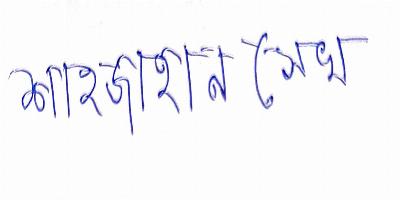 শাহজাহান সেখ